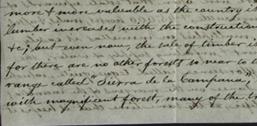 more & more valuable as the country is
lumber increases with the construction
&c; but even now, the sale of timber is
for there are no other forests so near to t
range called "Sierra de la Campana,"
with magnificent forest, many of the t